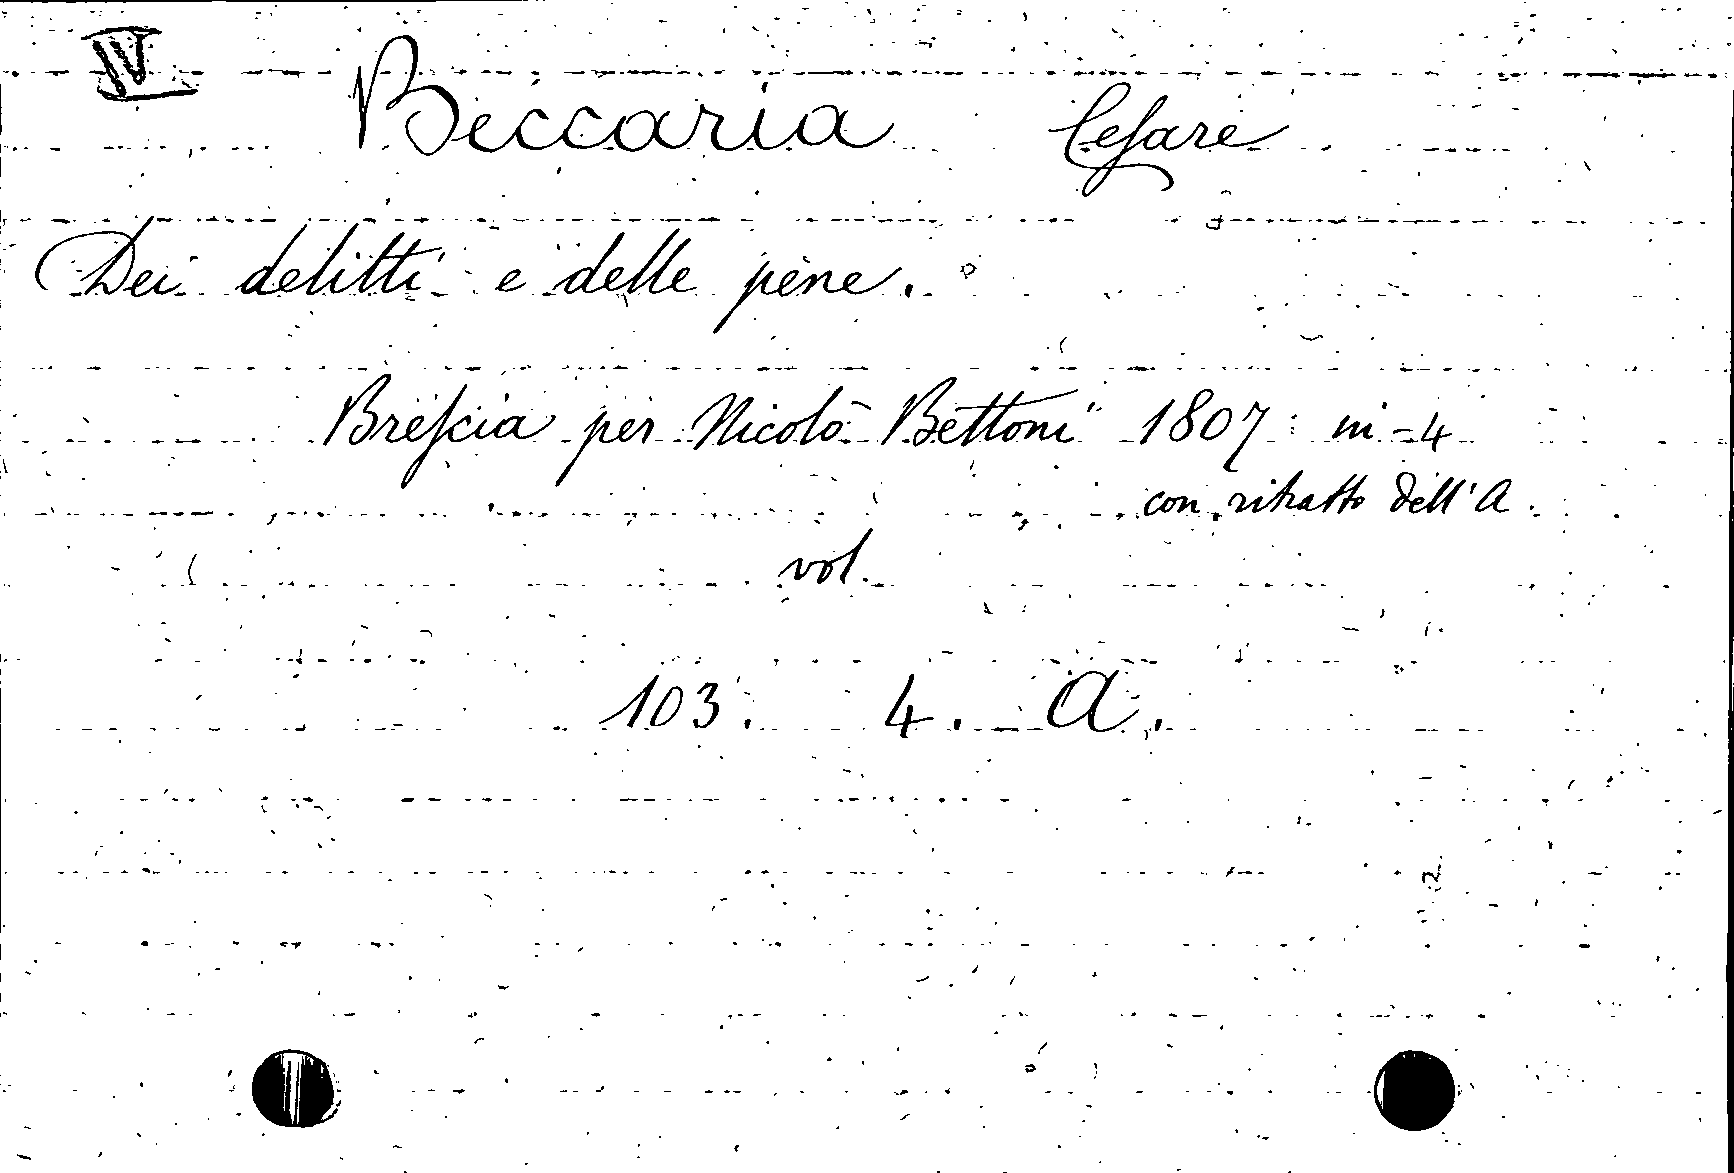 IV
Beccaria Cesare
Dei delitti e delle pene.
Brescia per Nicolò Bettoni 1807 in-4
con ritratto dell'A.
vol.
103. 4. A.